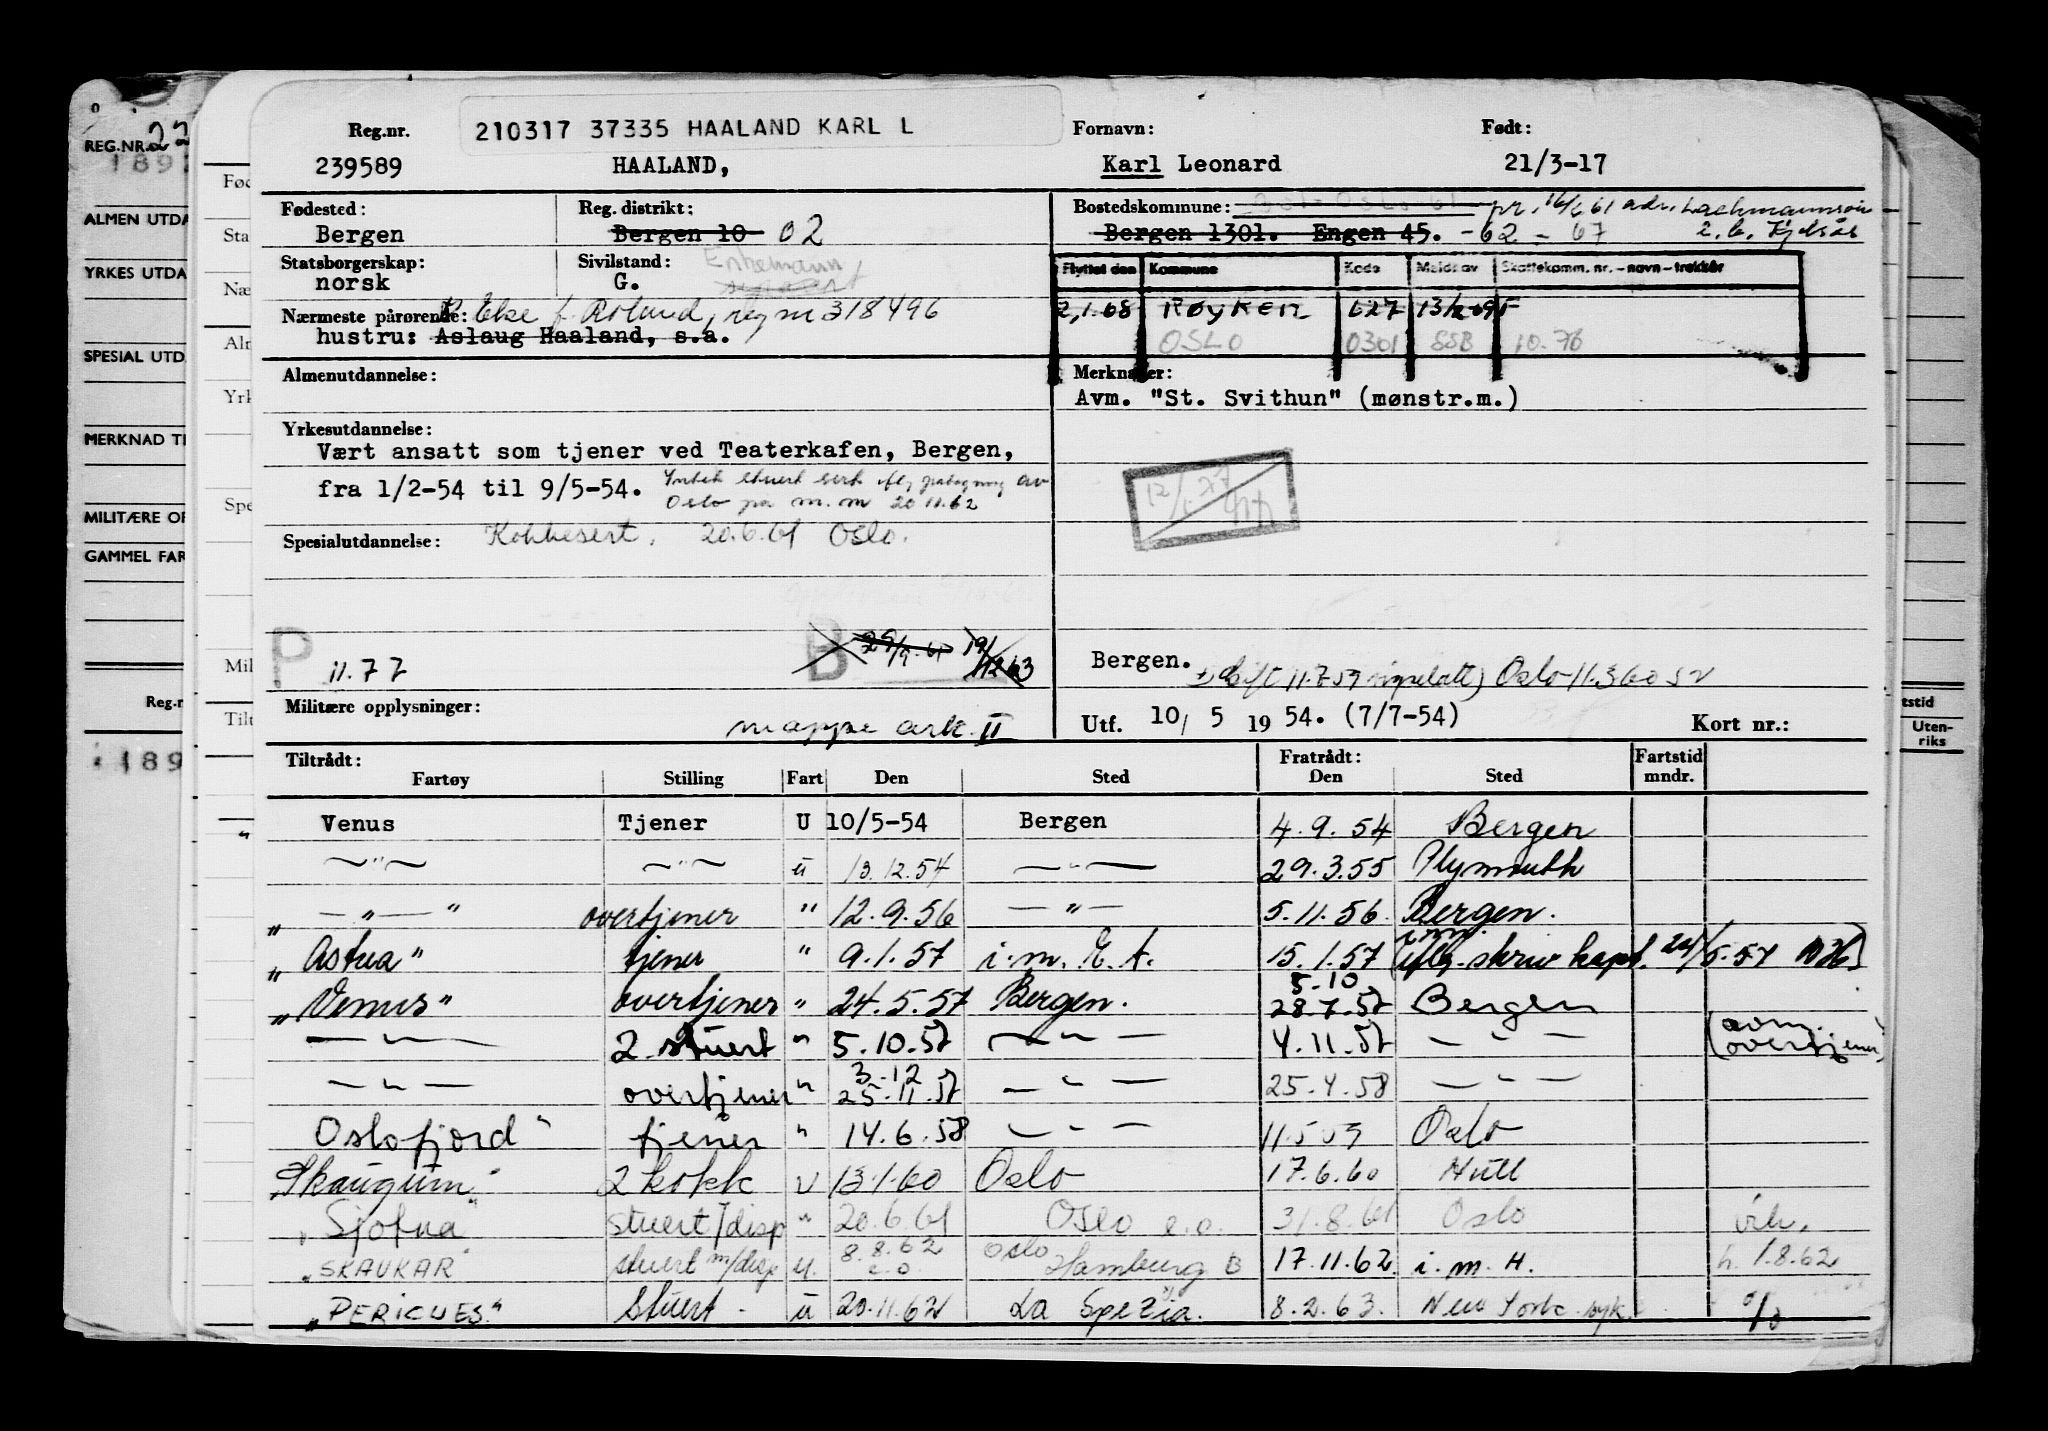 REG.NR. 22
189
ALMEN UTDA
YRKES UTDA
SPESIAL UTD
MERKNAD TI
MILITÆRE OP
GAMMEL FAR
Reg.n
189
Fød
Sta
Næ
Aln
Yrk
Spe
Mil
Tilt
tstid
Uten-
riks
Reg.nr. 210317 37335 HAALAND KARL L Fornavn: Født:
239589 HAALAND, Karl Leonard 21/3-17
Fødested: Reg. distrikt: Bostedskommune: adr. Lachmannsvn
Bergen Bergen 10 02 Bergen 1301. Engen 45. -62 - 67 Kjelsås
Statsborgerskap: Sivilstand: Enkemann Flyttet den Kommune Kode Meldt av Skattekomm. nr. - navn - trekkår
norsk G.
Nærmeste pårørende: Else f. Roland, reg nr 318496 2.1.68 RØYKEN 627
hustru: Aslaug Haaland, s.a. OSLO 0301 SSB 10.76
Almenutdannelse: Merknader:
Avm. "St. Svithun" (mønstr.m.)
Yrkesutdannelse:
Vært ansatt som tjener ved Teaterkafen, Bergen,
fra 1/2-54 til 9/5-54. stuert sert av
Oslo på m.m 20 11.62
Spesialutdannelse: Kokkesert. 20.6.61 Oslo.
P 11.77 B 19/12 63
Bergen. Oslo 11.3.60
Militære opplysninger: mappe ark. II
Utf. 10/ 5 19 54. (7/7-54) Kort nr.:
Tiltrådt: Fratrådt: Fartstid
Fartøy Stilling Fart Den Sted Den Sted mndr.
Venus Tjener U 10/5-54 Bergen 4.9.54 Bergen
— " — — " — u 13.12.54 — " — 29.3.55 Plymouth
" — " — " overtjener " 12.9.56 — " — 5.11.56 Bergen.
" Astrea " tjener " 9.1.57 i.m. E.A. 15.1.57 iflg. skriv kapt. 24/5.57
" Venus " overtjener " 24.5.57 Bergen. 28.7.57 Bergen
5.10
— " — 2 stuert " 5.10.57 — " — 4.11.57 — " — (avm. overtjener)
3.12
— " — overtjener " 25.11.57 — " — 25.4.58 — " —
Oslofjord " tjener " 14.6.58 — " — 11.5.59 Oslo
"Skaugum" 2 kokk U 13.1.60 Oslo 17.6.60 Hull
"Sjofna" stuert/disp " 20.6.61 Oslo e.o. 31.8.61 Oslo
"SKAUKAR" stuert m/disp u. 8.8.62 e.o. Oslo Hamburg B 17.11.62 i.m.H. h. 1.8.62
"PERICUES" Stuert - u 20.11.62 La Spezia. 8.2.63. New York syk.